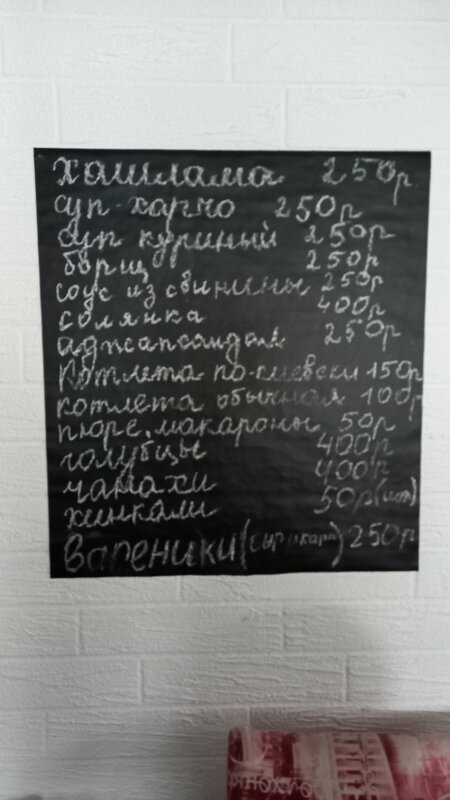 хашлама 250р
суп-харчо 250р
суп куриный 250р
борщ 250р
соус из свинины 250р
солянка 400р
аджапсандал 250р
Котлета по-киевски 150р
котлета обычная 100р
пюре, макароны 50р
голубцы 400р
чанахи 400р
хинкали 50р(шт)
Вареники(сыр и карт) 250р